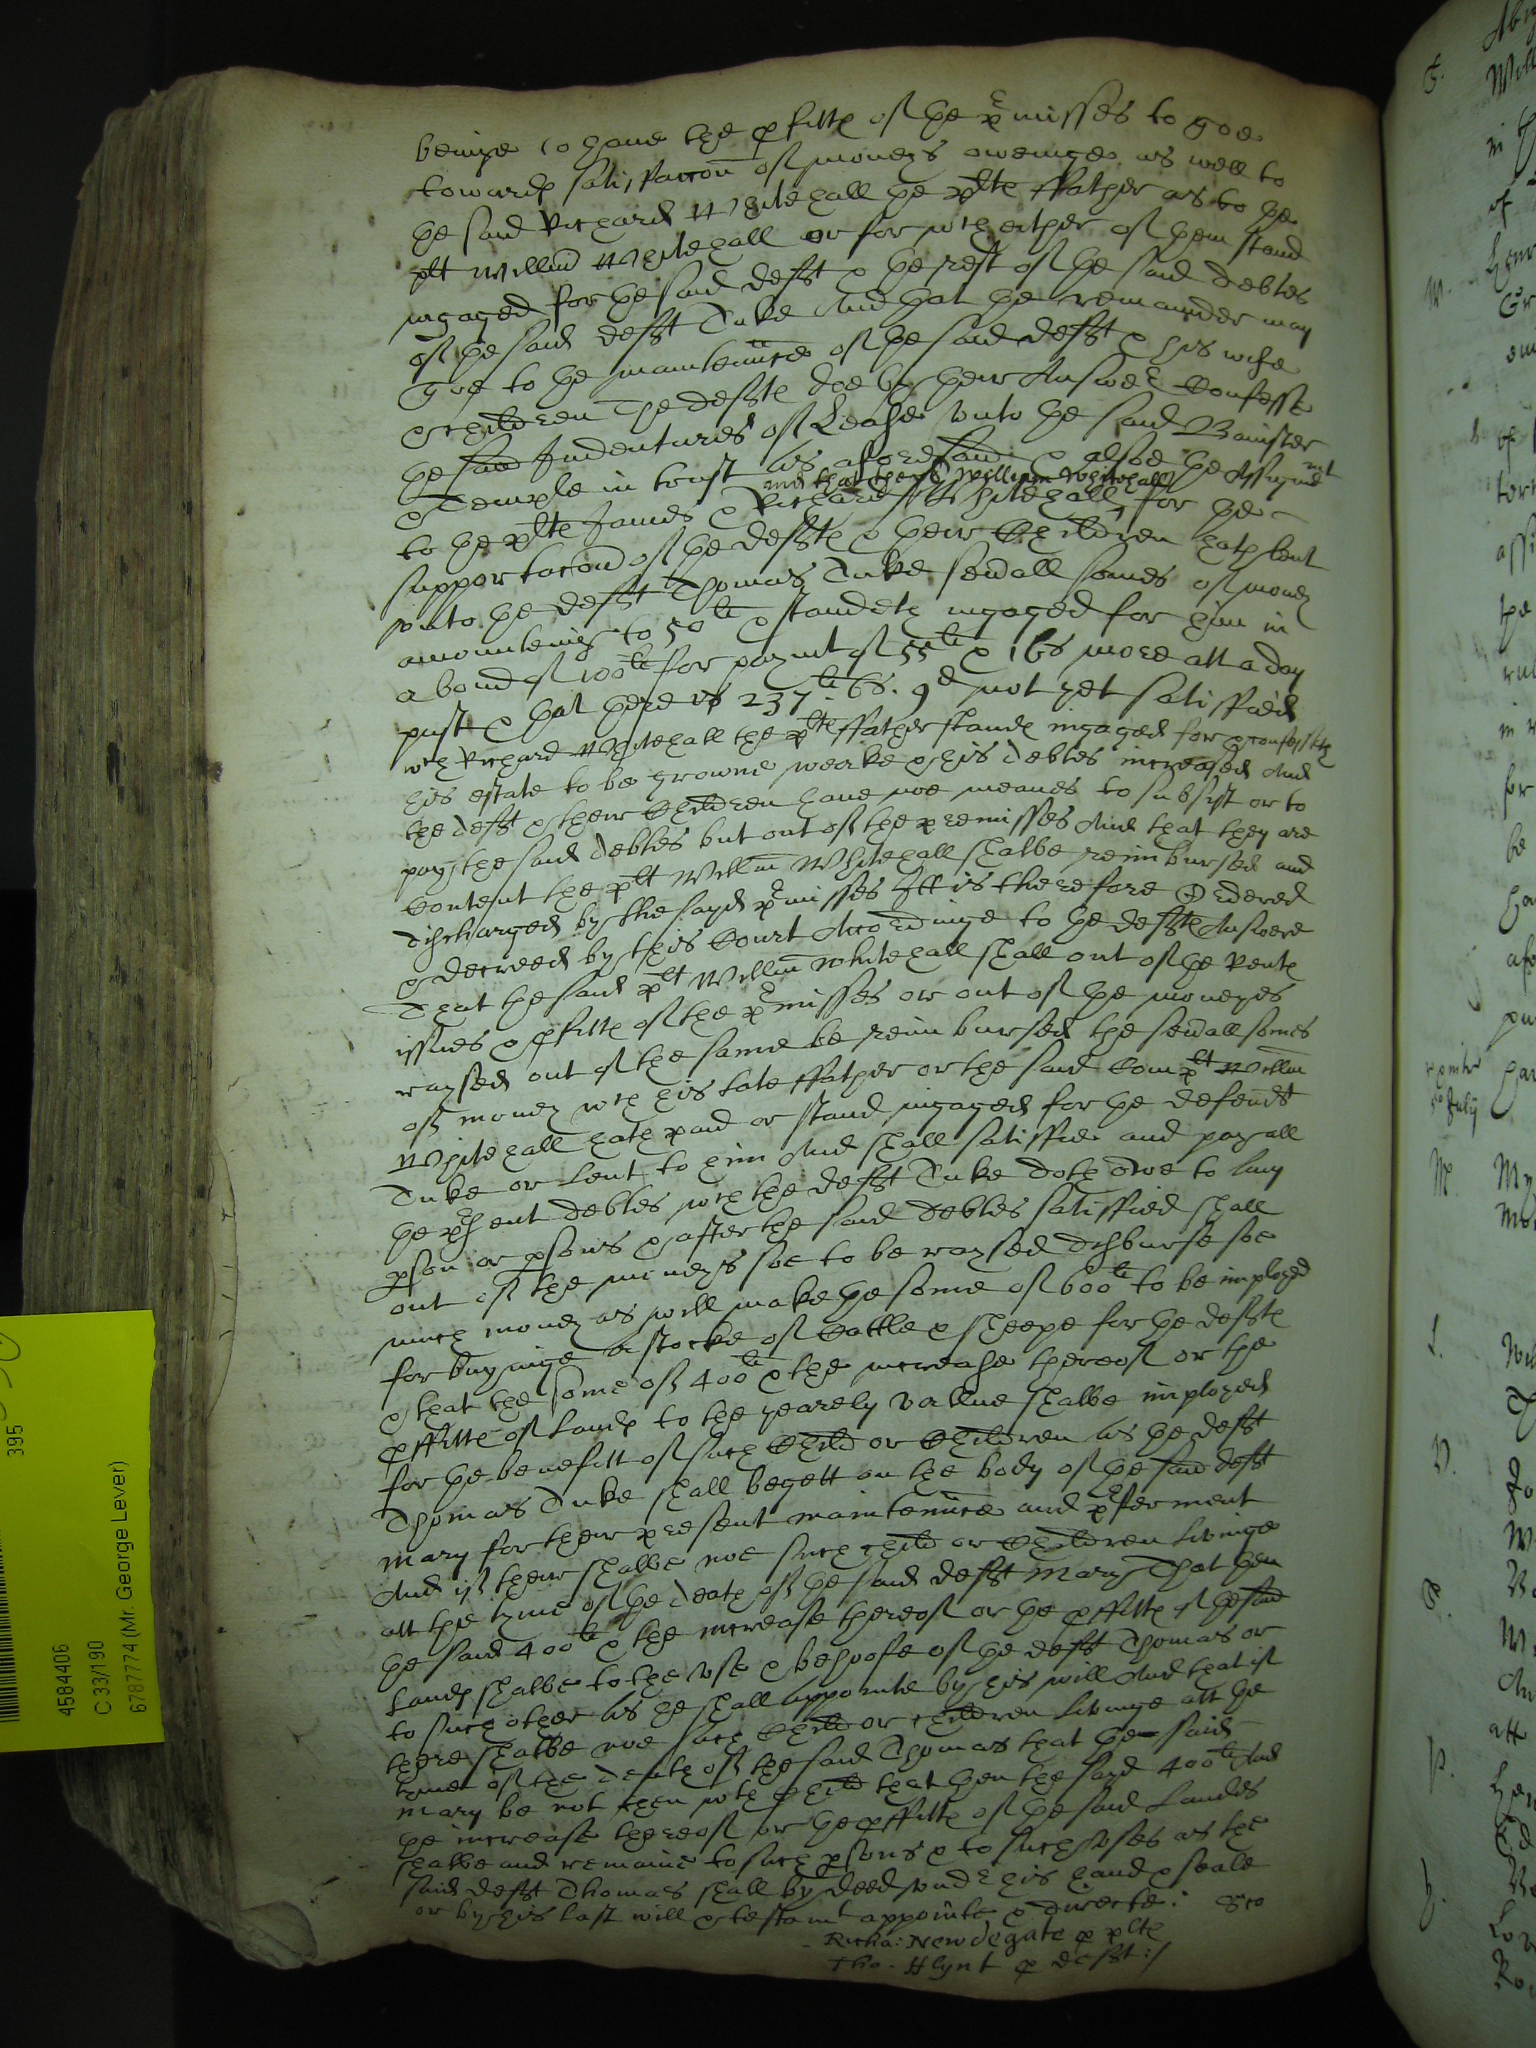 beinge to haue the pfitte of the pmisses to goe
towards satisfaccon of moneys oweinge as well to
the said Richard Whitehall the plte ffather as to the
plt Willm Whitehall or for wch either of them stand
ingaged for the said defft & the rest of the said debtes
of the said defft Duke And that the remainder may
goe to the maintennce of the said defft & his wife
& children The deffte doe by their Answer Confesse
the said Indentures of Lease vnto the said Banister
& Temple in trust as aforesaid & alsoe the Assignmt
to the plte James & Richard Whitehall for the
and that the plt William Whitehall
supportacon of the deffte & their Children hath lent
vnto the defft Thomas Duke seuall somes of money
amountinge to 50li & standeth ingaged for him in
a bond of 100li for paymt of 55li & 16s more att a day
past & that there is 237li. 6s. 9d not yet satisfied
wch Richard Whitehall the plte ffather stands ingaged for & confesseth
his estate to be growne weake & his debtes increased And
the defft & their Children haue noe meanes to subsist or to
pay the said debtes but out of the premisses And that they are
Content the plt Willm Whitehall shalbe reimbursed and
discharged by the sayd pmisses Itt is therefore Ordered
& decreed by this Court Accordinge to the deffte Answere
That the said plt Willm Whitehall shall out of the Rents
issues & pfitte of the pmisses or out of the moneyes
raysed out of the same be reimbursed the seuall somes
of money wch his late ffather or the said Complt Willm
Whitehall hath paid or stand ingaged for the defendt
Duke or Lent to him And shall satisfie and pay all
the psent debtes wch the defft Duke doth Owe to any
pson or psons & after the said debtes satisfied shall
out of the moneys soe to be raysed disburse soe
much money as will make the some of 600li to be imployed
for buyinge a stocke of Cattle & sheepe for the deffte
& that the some of 400li & the increase thereof or the
pffitte of Lands to the yearely vallue shalbe imployed
for the benefitt of such Child or Children as the defft
Thomas Duke shall begett on the body of the said defft
Mary for their present maintennce and pferment
And if their shalbe noe such child or Children Livinge
att the tyme of the death of the said defft Mary That then
the said 400li & the increase thereof or the pffitte of the said
Lands shalbe to the vse & behoofe of the defft Thomas or
to such other as he shall appointe by his will And that if
there shalbe noe such Child or children Livinge att the
time of the death of the said Thomas that the said
Mary be not then with Child that then the sayd 400li And
the increase thereof or the pffitte of the said Landes
shalbe and remaine to such psons & to such vses as the
said defft Thomas shall by deed vnder his hand & seale
or by his last will & testamt appointe & directe: &c
Richa: Newdegate p plte
Tho. Flynt p defft:/
395
4584406
C 33/190
6787774 (Mr. George Lever)